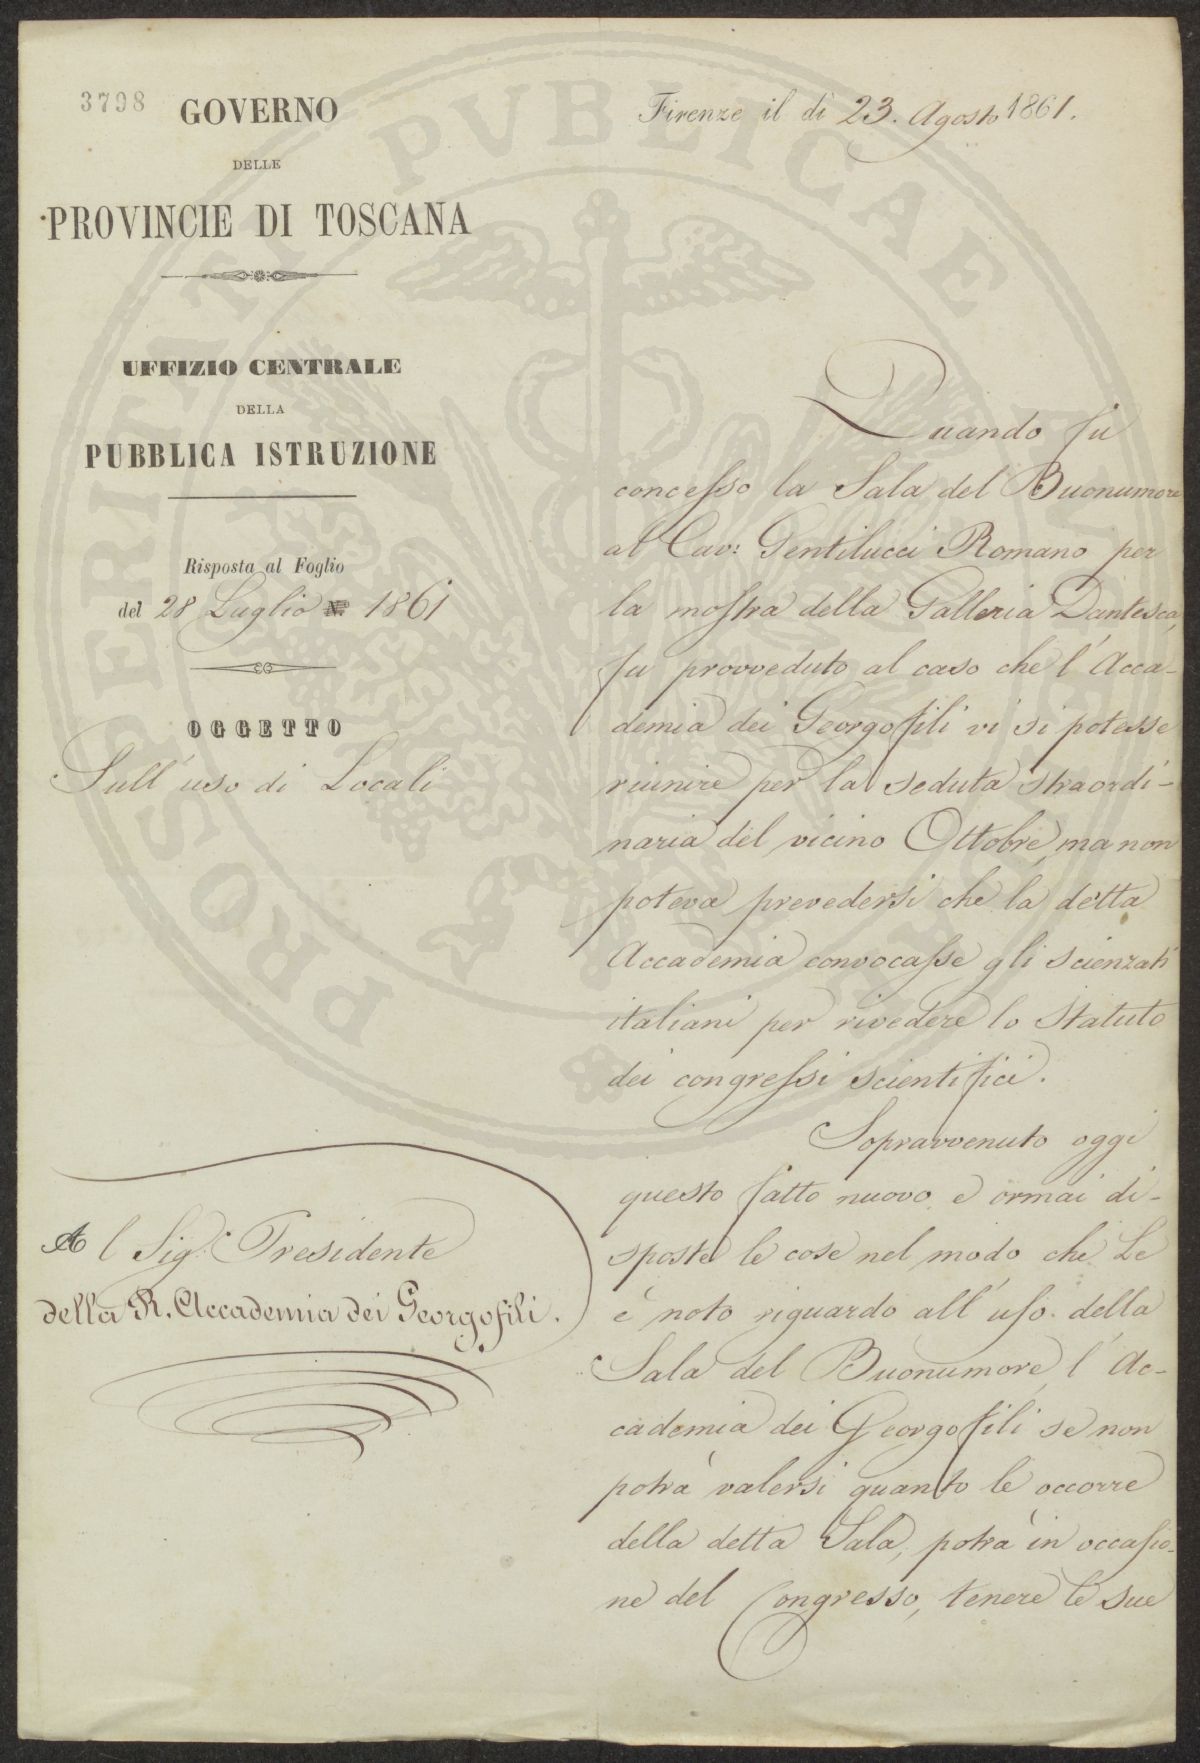 3798
GOVERNO
DELLE
PROVINCIE DI TOSCANA
UFFIZIO CENTRALE
DELLA
PUBBLICA ISTRUZIONE
Risposta al Foglio
del 28 Luglio N.° 1861
OGGETTO
Sull'uso di Locali
Al Sig: Presidente
della R. Accademia dei Georgofili.
Firenze il dì 23. Agosto 1861.
Quando fu
concesso la Sala del Buonumore
al Cav: Gentilucci Romano per
la mostra della Galleria Dantesca,
fu provveduto al caso che l'Acca-
demia dei Georgofili vi si potesse
riunire per la seduta straordi-
naria del vicino Ottobre, ma non
poteva prevedersi che la detta
Accademia convocasse gli scienzati
italiani per rivedere lo Statuto
dei congressi scientifici.
Sopravvenuto oggi
questo fatto nuovo, e ormai di-
sposte le cose nel modo che Le
è noto riguardo all'uso della
Sala del Buonumore, l'Ac-
cademia dei Georgofili se non
potrà valersi quanto le occorre
della detta Sala, potrà in occasio-
ne del Congresso, tenere le sue
PROSPERITATI PUBLICAE AUGENDAE